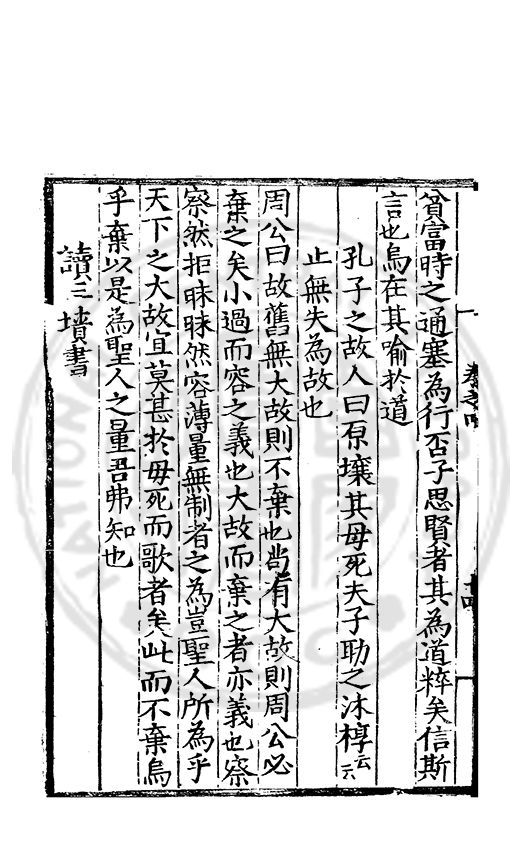 貧富時之通塞為行否子思賢者其為道粹矣信斯
言也烏在其喻於道
孔子之故人曰原壤其毋死夫子助之沐椁云云
止無失為故也
周公曰故舊無大故則不棄也尚有大故則周公必
棄之矣小過而容之義也大故而棄之者亦義也察
察然拒昧昧然容薄量無制者之為豈聖人所為乎
天下之大故宜莫甚於毋死而歌者矣此而不棄烏
乎棄以是為聖人之量吾弗知也
讀三墳書